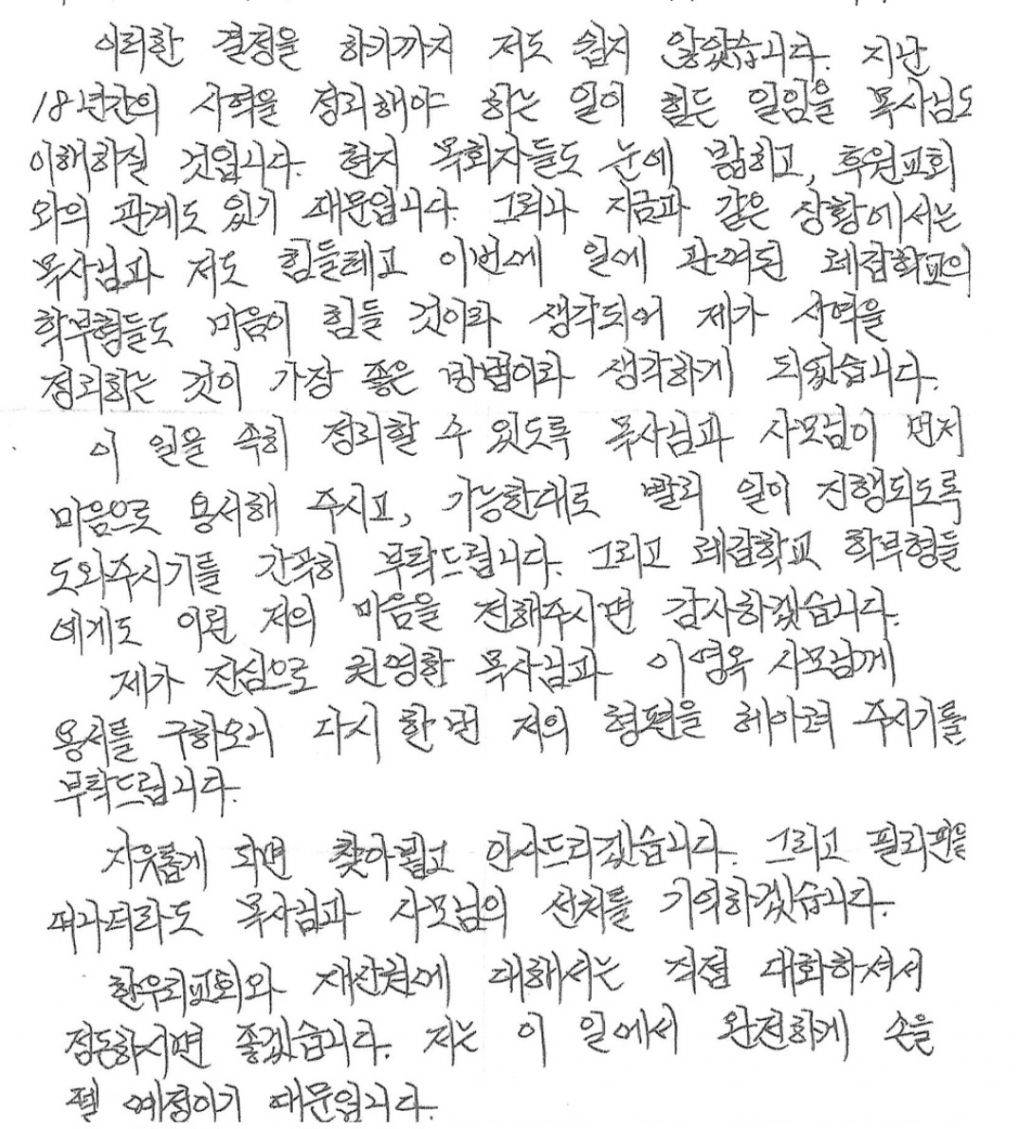 이러한 결정을 하기까지 저도 쉽지 않았습니다. 지난
18년간의 사역을 정리해야 하는 일이 힘든 일임을 목사님도
이해하실 것입니다. 현지 목회자들도 눈에 밟히고, 후원교회
와의 관계도 있기 때문입니다. 그러나 지금과 같은 상황에서는
목사님과 저도 힘들테고 이번에 일에 관여된 레감학교의
학부형들도 마음이 힘들 것이라 생각되어 제가 사역을
정리하는 것이 가장 좋은 방법이라 생각하게 되었습니다.
이 일을 속히 정리할 수 있도록 목사님과 사모님이 먼저
마음으로 용서해 주시고, 가능한대로 빨리 일이 진행되도록
도와주시기를 간곡히 부탁드립니다. 그리고 레감학교 학부형들
에게도 이런 저의 마음을 전해주시면 감사하겠습니다.
제가 진심으로 권영한 목사님과 이영옥 사모님께
용서를 구하오니 다시 한번 저의 형편을 헤아려 주시기를
부탁드립니다.
자유롭게 되면 찾아뵙고 인사드리겠습니다. 그리고 필리핀을
떠나더라도 목사님과 사모님의 선처를 기억하겠습니다.
한우리교회와 재산권에 대해서는 직접 대화하셔서
정돈하시면 좋겠습니다. 저는 이 일에서 완전하게 손을
뗄 예정이기 때문입니다.